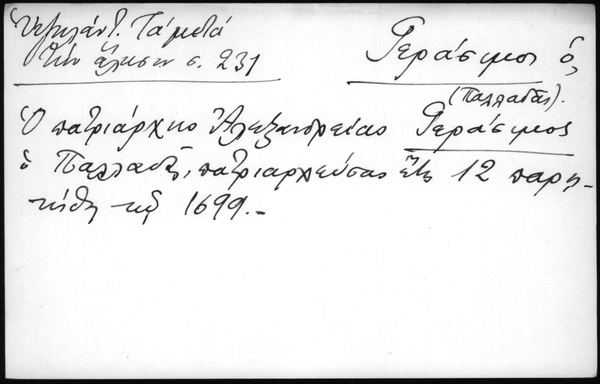 Τὰ μετὰ
τὴν ἅλωσιν σ. 231
Γεράσιμος ὁ,
(Παλλαδᾶς).
Ὁ πατριάρχης Ἀλεξανδρείας Γεράσιμος
ὁ Παλλαδᾶς, πατριαρχεύσας ἔτη 12 παρῃ-
τήθη τῷ 1699.-